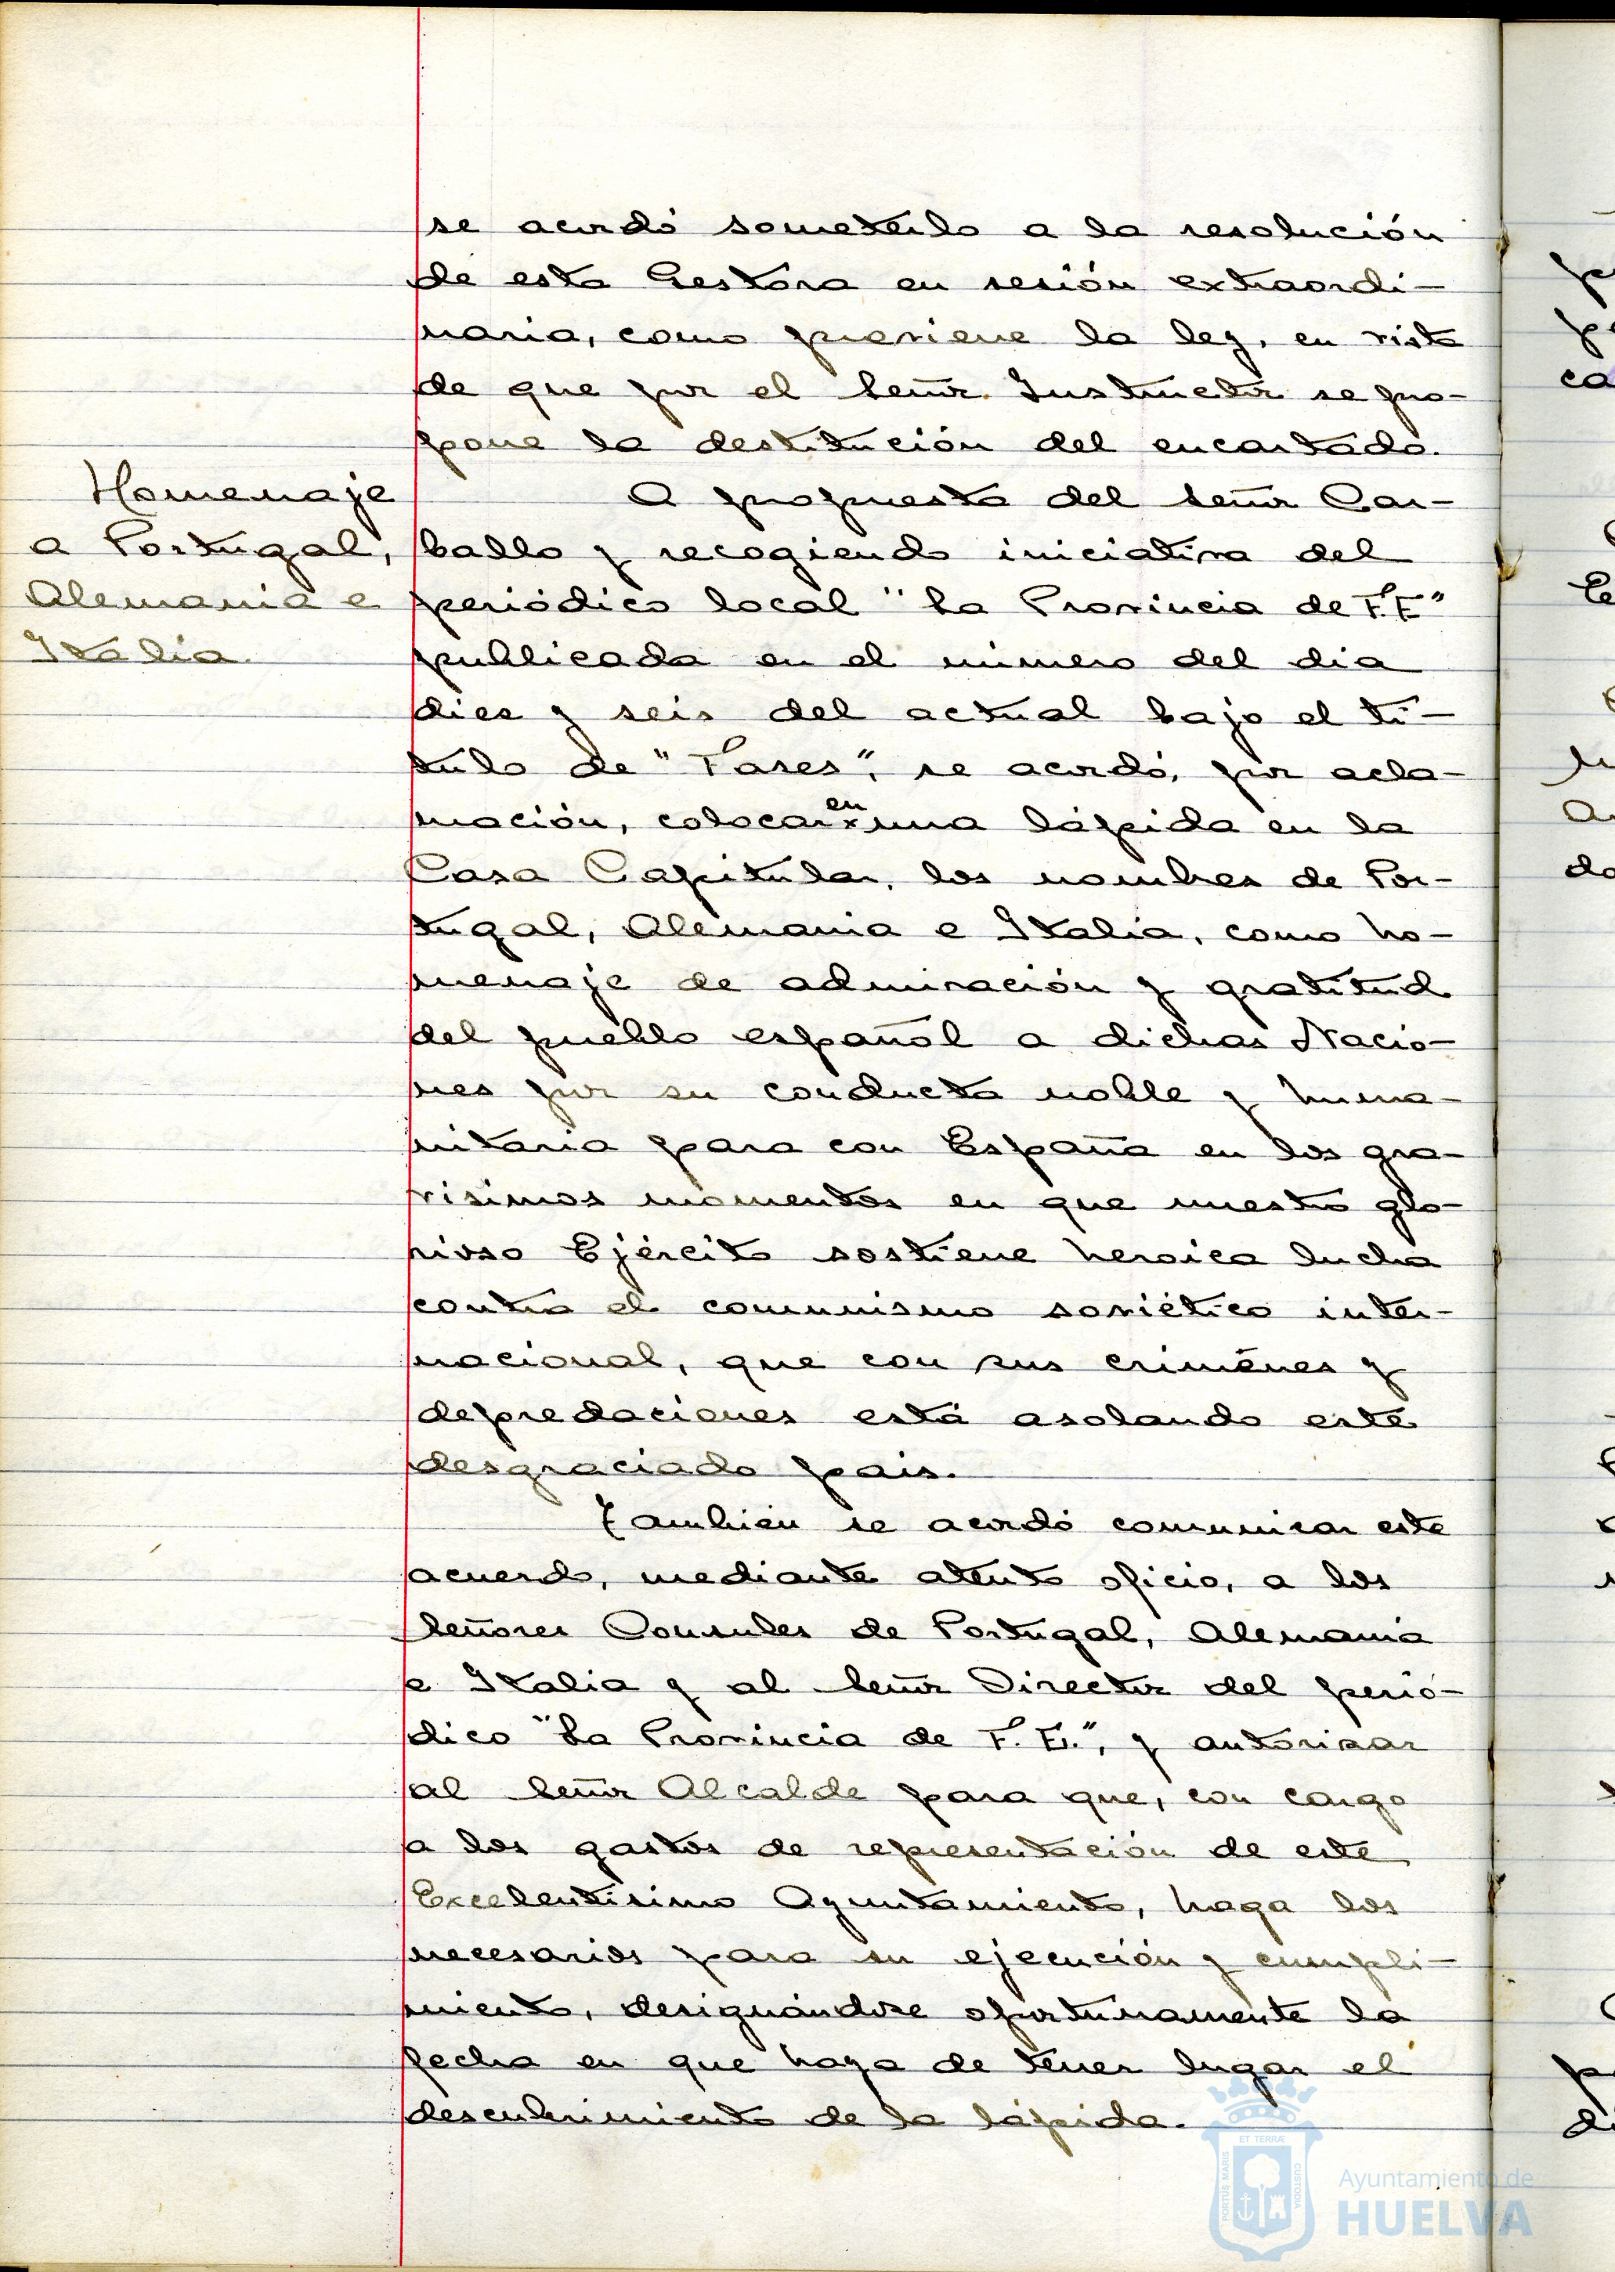 se acordó someterlo a la resolución
de esta Gestora en sesión extraordi-
naria, como previene la ley, en vista
de que por el Señor Instructor se pro-
pone la destitución del encartado.
Homenaje
a Portugal,
Alemania e
Italia.
A propuesta del Señor Car-
ballo y recogiendo iniciativa del
periódico local "La Provincia de F.E"
publicada en el número del día
diez y seis del actual bajo el tí-
tulo de "Fases", se acordó, por acla-
mación, colocar en una lápida en la
Casa Capitular, los nombres de Por-
tugal, Alemania e Italia, como ho-
menaje de admiración y gratitud
del pueblo español a dichas Nacio-
nes por su conducta noble y huma-
nitaria para con España en los gra-
vísimos momentos en que nuestro glo-
rioso Ejército sostiene heroica lucha
contra el comunismo soviético inter-
nacional, que con sus crímenes y
depredaciones está asolando este
desgraciado país.
También se acordó comunicar este
acuerdo, mediante atento oficio, a los
Señores Consules de Portugal, Alemania
e Italia y al Señor Director del perió-
dico "La Provincia de F. E.", y autorizar
al Señor Alcalde para que, con cargo
a los gastos de representación de este
Excelentísimo Ayuntamiento, haga los
necesarios para su ejecución y cumpli-
miento, designándose oportunamente la
fecha en que haya de tener lugar el
descubrimiento de la lápida.
ET TERRÆ
PORTUS MARIS
CUSTODIA
Ayuntamiento de
HUELVA